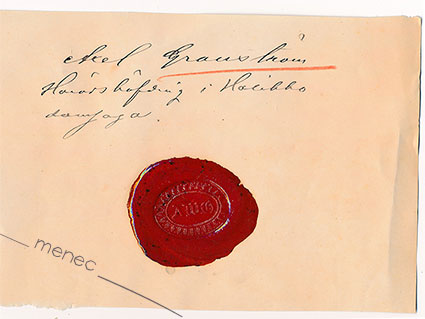 Axel Granström
Häradshöfding i Halikko
domsaga.
menec